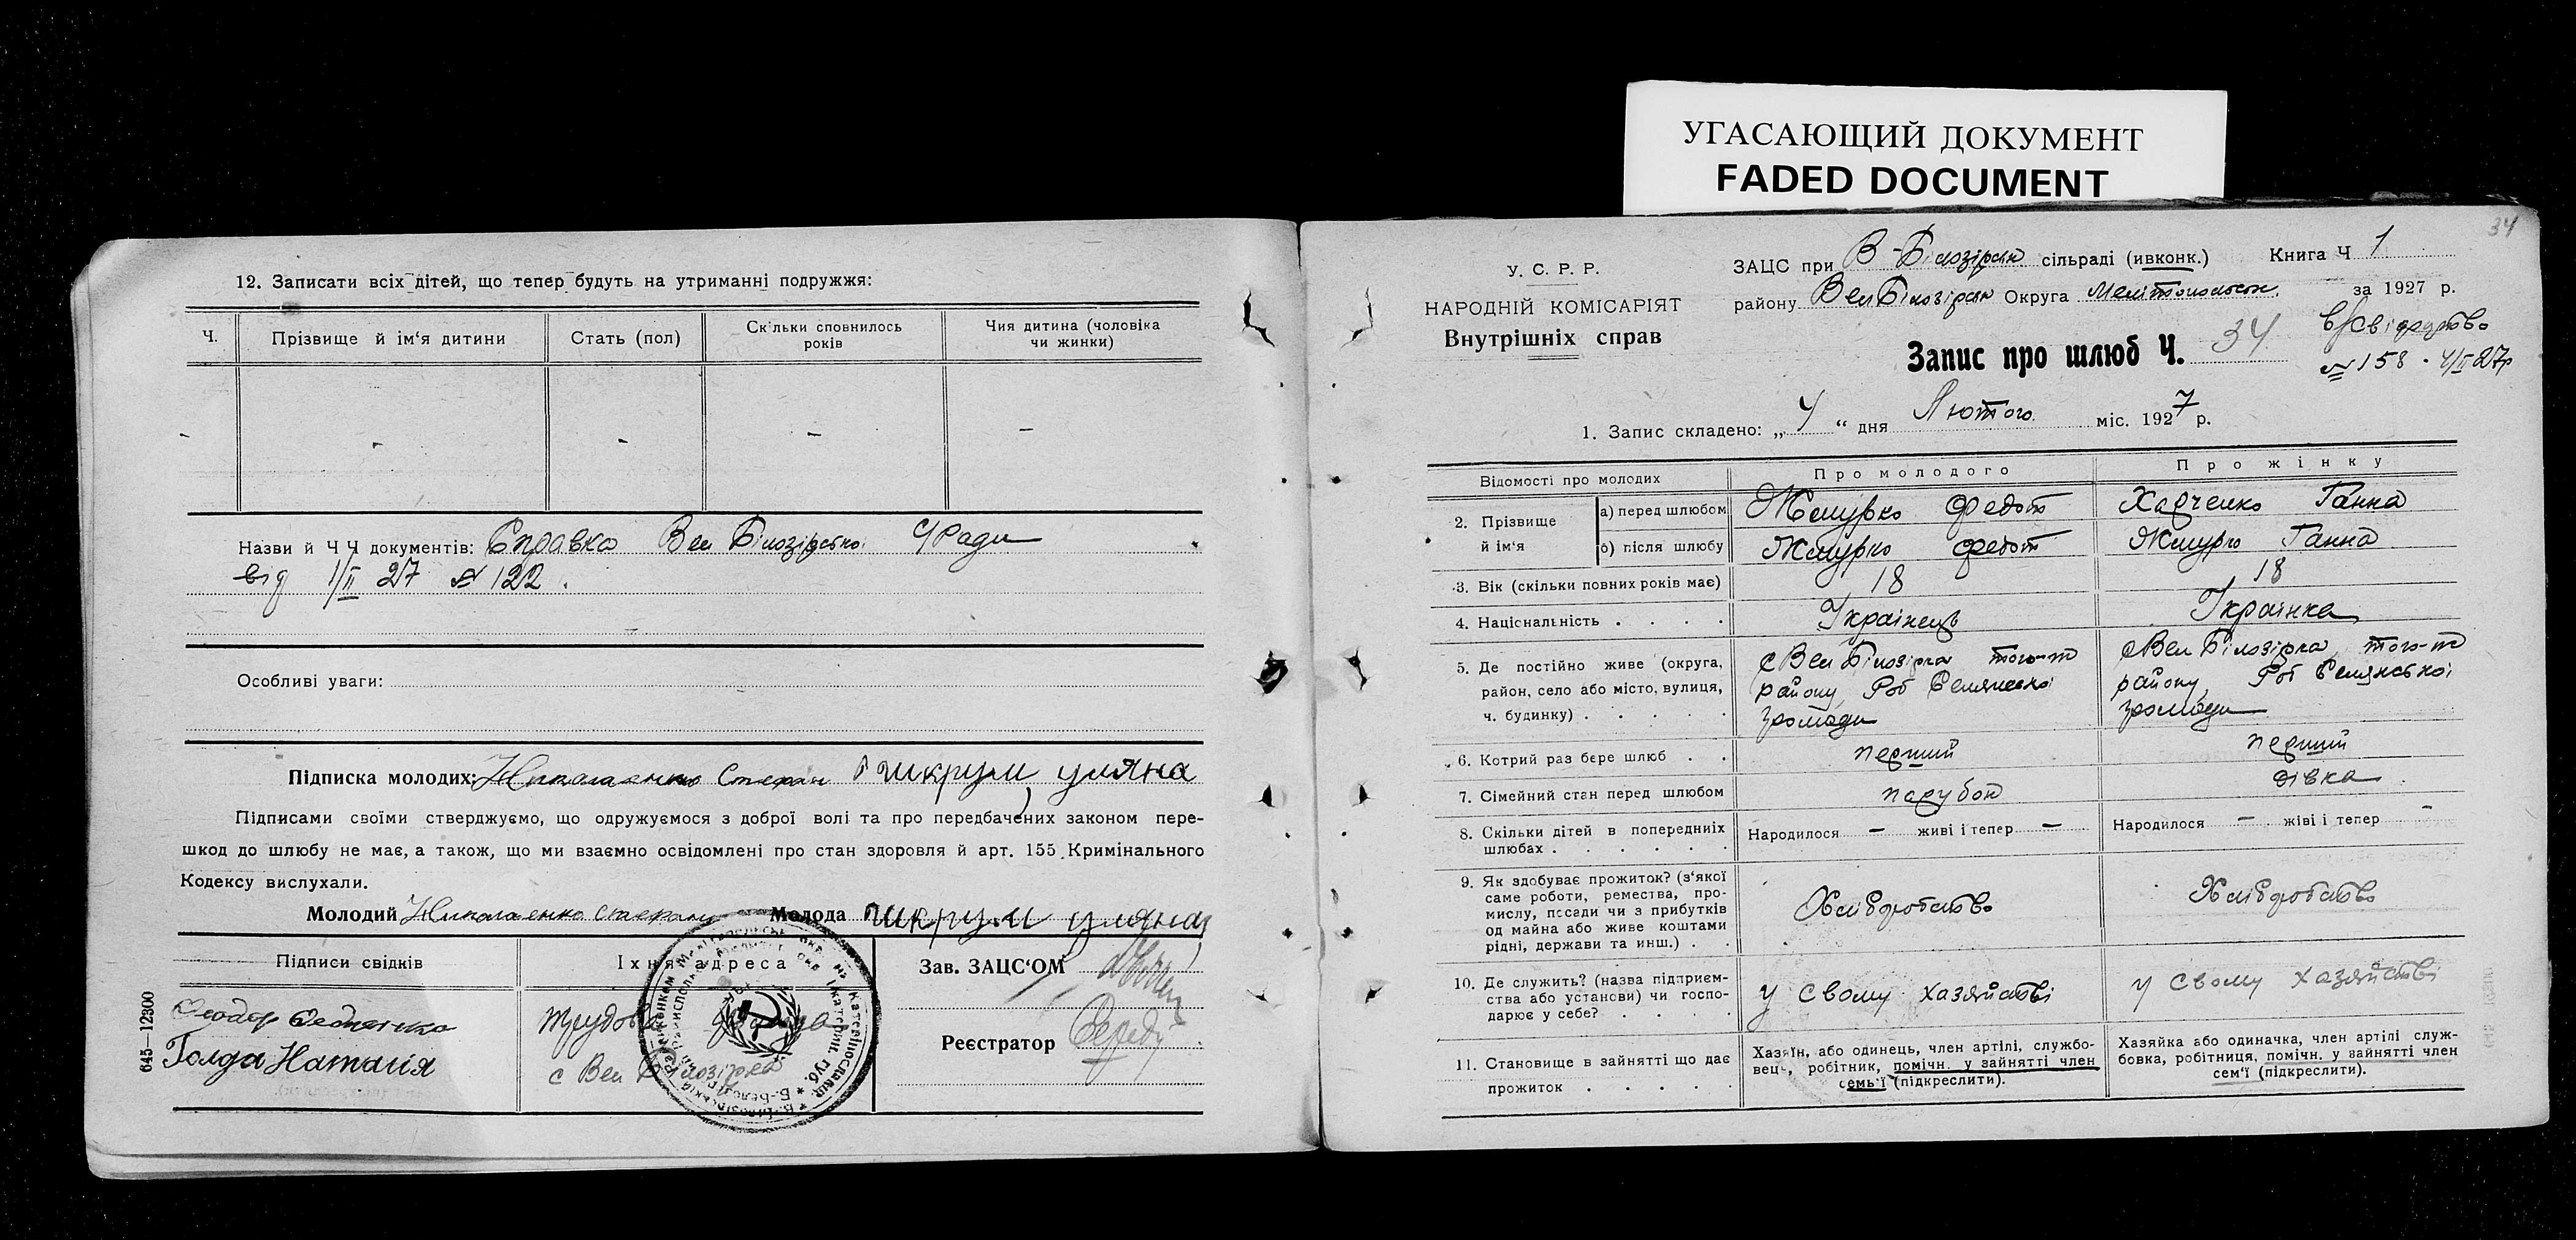 УГАСАЮЩИЙ ДОКУМЕНТ
FADED DOCUMENT
12. Записати всіх дітей, що тепер будуть на утриманні подружжя:
Ч. Прізвище й ім‘я дитини Стать (пол) Скільки сповнилось років Чия дитина (чоловіка чи жинки)
- - - - -
Назви й Ч Ч документів: Справка Вел Білозірської С/Ради
від 1/II 27 № 122.
Особливі уваги:
Підписка молодих: Николаенко Степан Пикруш уляна
Підписами своїми стверджуємо, що одружуємося з доброї волі та про передбачених законом пере-
шкод до шлюбу не має, а також, що ми взаємно освідомлені про стан здоровля й арт. 155 Кримінального
Кодексу вислухали.
Молодий Николаенко Степан Молода
Підписи свідків Їхня адреса Зав. ЗАЦС‘ОМ
Голда Наталія
с Вел Білозірка
Реєстратор
645—12300
34
У. С. Р. Р.
НАРОДНІЙ КОМІСАРІЯТ
Внутрішніх справ
ЗАЦС при В-Білозірськ сільраді (ивконк.) Книга Ч 1
району ВелБілозірськ Округа Мелітопольськ за 1927 р.
в/свідоцтво
№ 158 · 4/II 27р
Запис про шлюб Ч. 34
1. Запис складено: „ 4 “ дня Лютого міс. 1927 р.
Відомості про молодих Про молодого Про жінку
2. Прізвище й ім‘я
а) перед шлюбом Жмурко Федот Харченко Ганна
б) після шлюбу Жмурко Федот Жмурко Ганна
3. Вік (скільки повних років має) 18 18
4. Національність Українець Українка
5. Де постійно живе (округа, район, село або місто, вулиця, ч. будинку)
с Вел Білозірка того-ж
району Роб Селянської
громади
с Вел Білозірка того-ж
району Роб Селянської
громади
6. Котрий раз бере шлюб перший перший
7. Сімейний стан перед шлюбом парубок дівка
8. Скільки дітей в попередниіх шлюбах Народилося — живі і тепер — Народилося — жіві і тепер -
9. Як здобуває прожиток? (з‘якої
саме роботи, ремества, про-
мислу, посади чи з прибутків
од майна або живе коштами
рідні, держави та инш.)
Хліборобство Хліборобство
10. Де служить? (назва підприєм-
ства або установи) чи госпо-
дарює у себе?
у свому хазяйстві у свому хазяйстві
11. Становище в зайнятті що дає
прожиток
Хазяїн, або одинець, член артілі, службо-
вець, робітник, помічн. у зайнятті член
семь‘ї (підкреслити).
Хазяйка або одиначка, член артілі служ-
бовка, робітниця, помічн. у зайнятті член
сем‘ї (підкреслити).